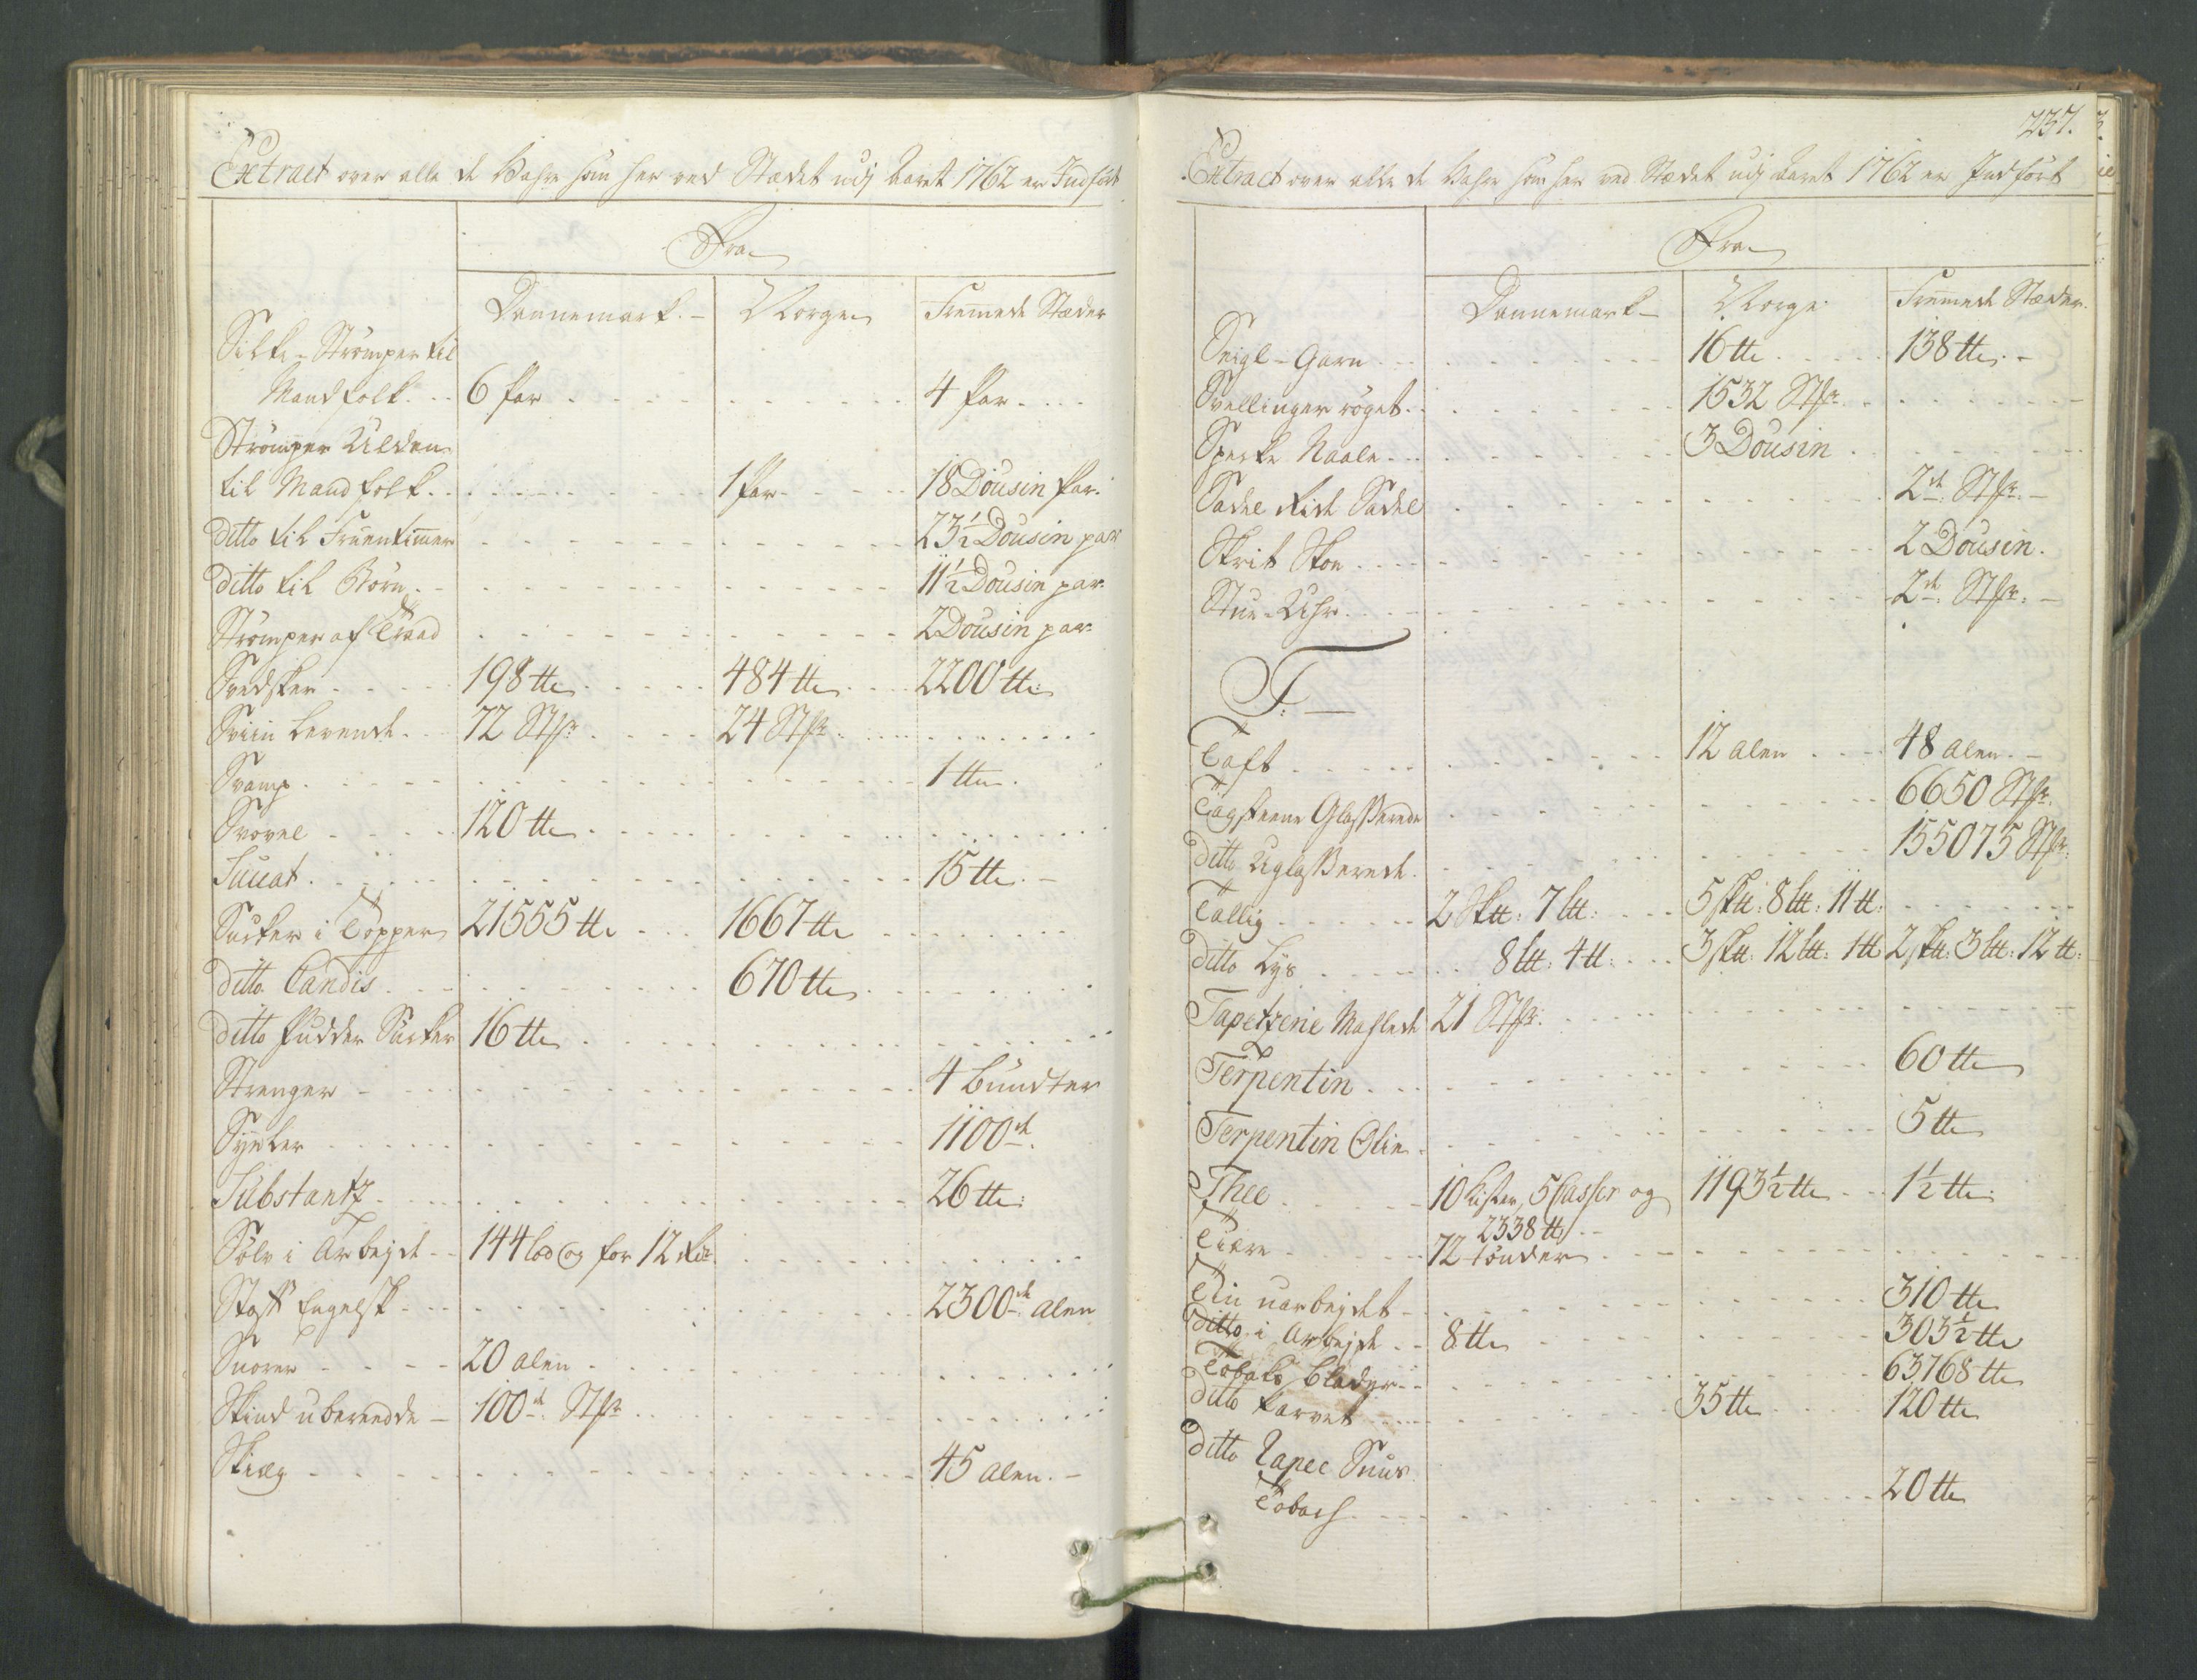 Extract over alle de Wahre som her ved Stædet udj Aaret 1762 er Indført
Fra
Dannemark. - Norge Fremmede Stæder
Silke-Strømper til
Mandfolk. 6 Par 4 Par
Strømper Ulden
til Mandfolk 1 Par 18 Dousin Par.
ditto til Fruentimer 23½ Dousin par
ditto til Børn 11½ Dousin par
Strømper af Traad 2 Dousin par
Svedsker 198 tt 484 tt 2200 tt
Sviin Levende 72 Stkr 24 Stkr
Svamp 1 tt
Svovel 120 tt
Succat 15 tt
Sucker i Topper 21555 tt 1667 tt
ditto Candis 670 tt
ditto Pudder Sucker 16 tt
Strenger 4 bundter
Syeler 1100 st
Substantz 26 tt
Sølv i Arbejde 144 lod og for 12 Rdr
Stoff Engelsk 2300 de alen
Snorer 20 alen
Skind uberædde 100 de Stkr
Skiæg 45 alen
237.
Extract over alle de Wahre som her ved Stædet udj Aaret 1762 er Indført
Fra
Dannemark - Norge Fremmede Stæder.
Seigl-Garn 16 tt 138 tt
Svellinger røget 1532 Stkr
Sperke Naale 3 Dousin
Sadel Ride Sadel 2de Stkr
Skrit Skoe 2 Dousin.
Stue-Uhr 2de Stkr
T: —
Taft 12 alen 48 alen
Tagsteene Glasserede 6650 Stkr
ditto Uglasserede. 155075 Stkr
Tallig 2 Sktt: 7 ltt: 5 sktt: 8 ltt: 11 tt:
ditto Lys 8 ltt: 4 tt: 3 sktt: 12 ltt: 1 tt 2 sktt: 3 ltt: 12 tt:
Tapetzerie Mahlede 21 Stkr.
Terpentin 60 tt
Terpentin Olie 5 tt
Thee 10 kister, 5 Casser og 1193½ tt 1½ tt
2338 tt
Tiære 72 tønder
Tin uarbejdet 310 tt
ditto i Arbejde 8 tt 303½ tt
Tobaks blader 63768 tt
ditto karvet 35 tt 120 tt
ditto Rapee Snus
Tobach 20 tt